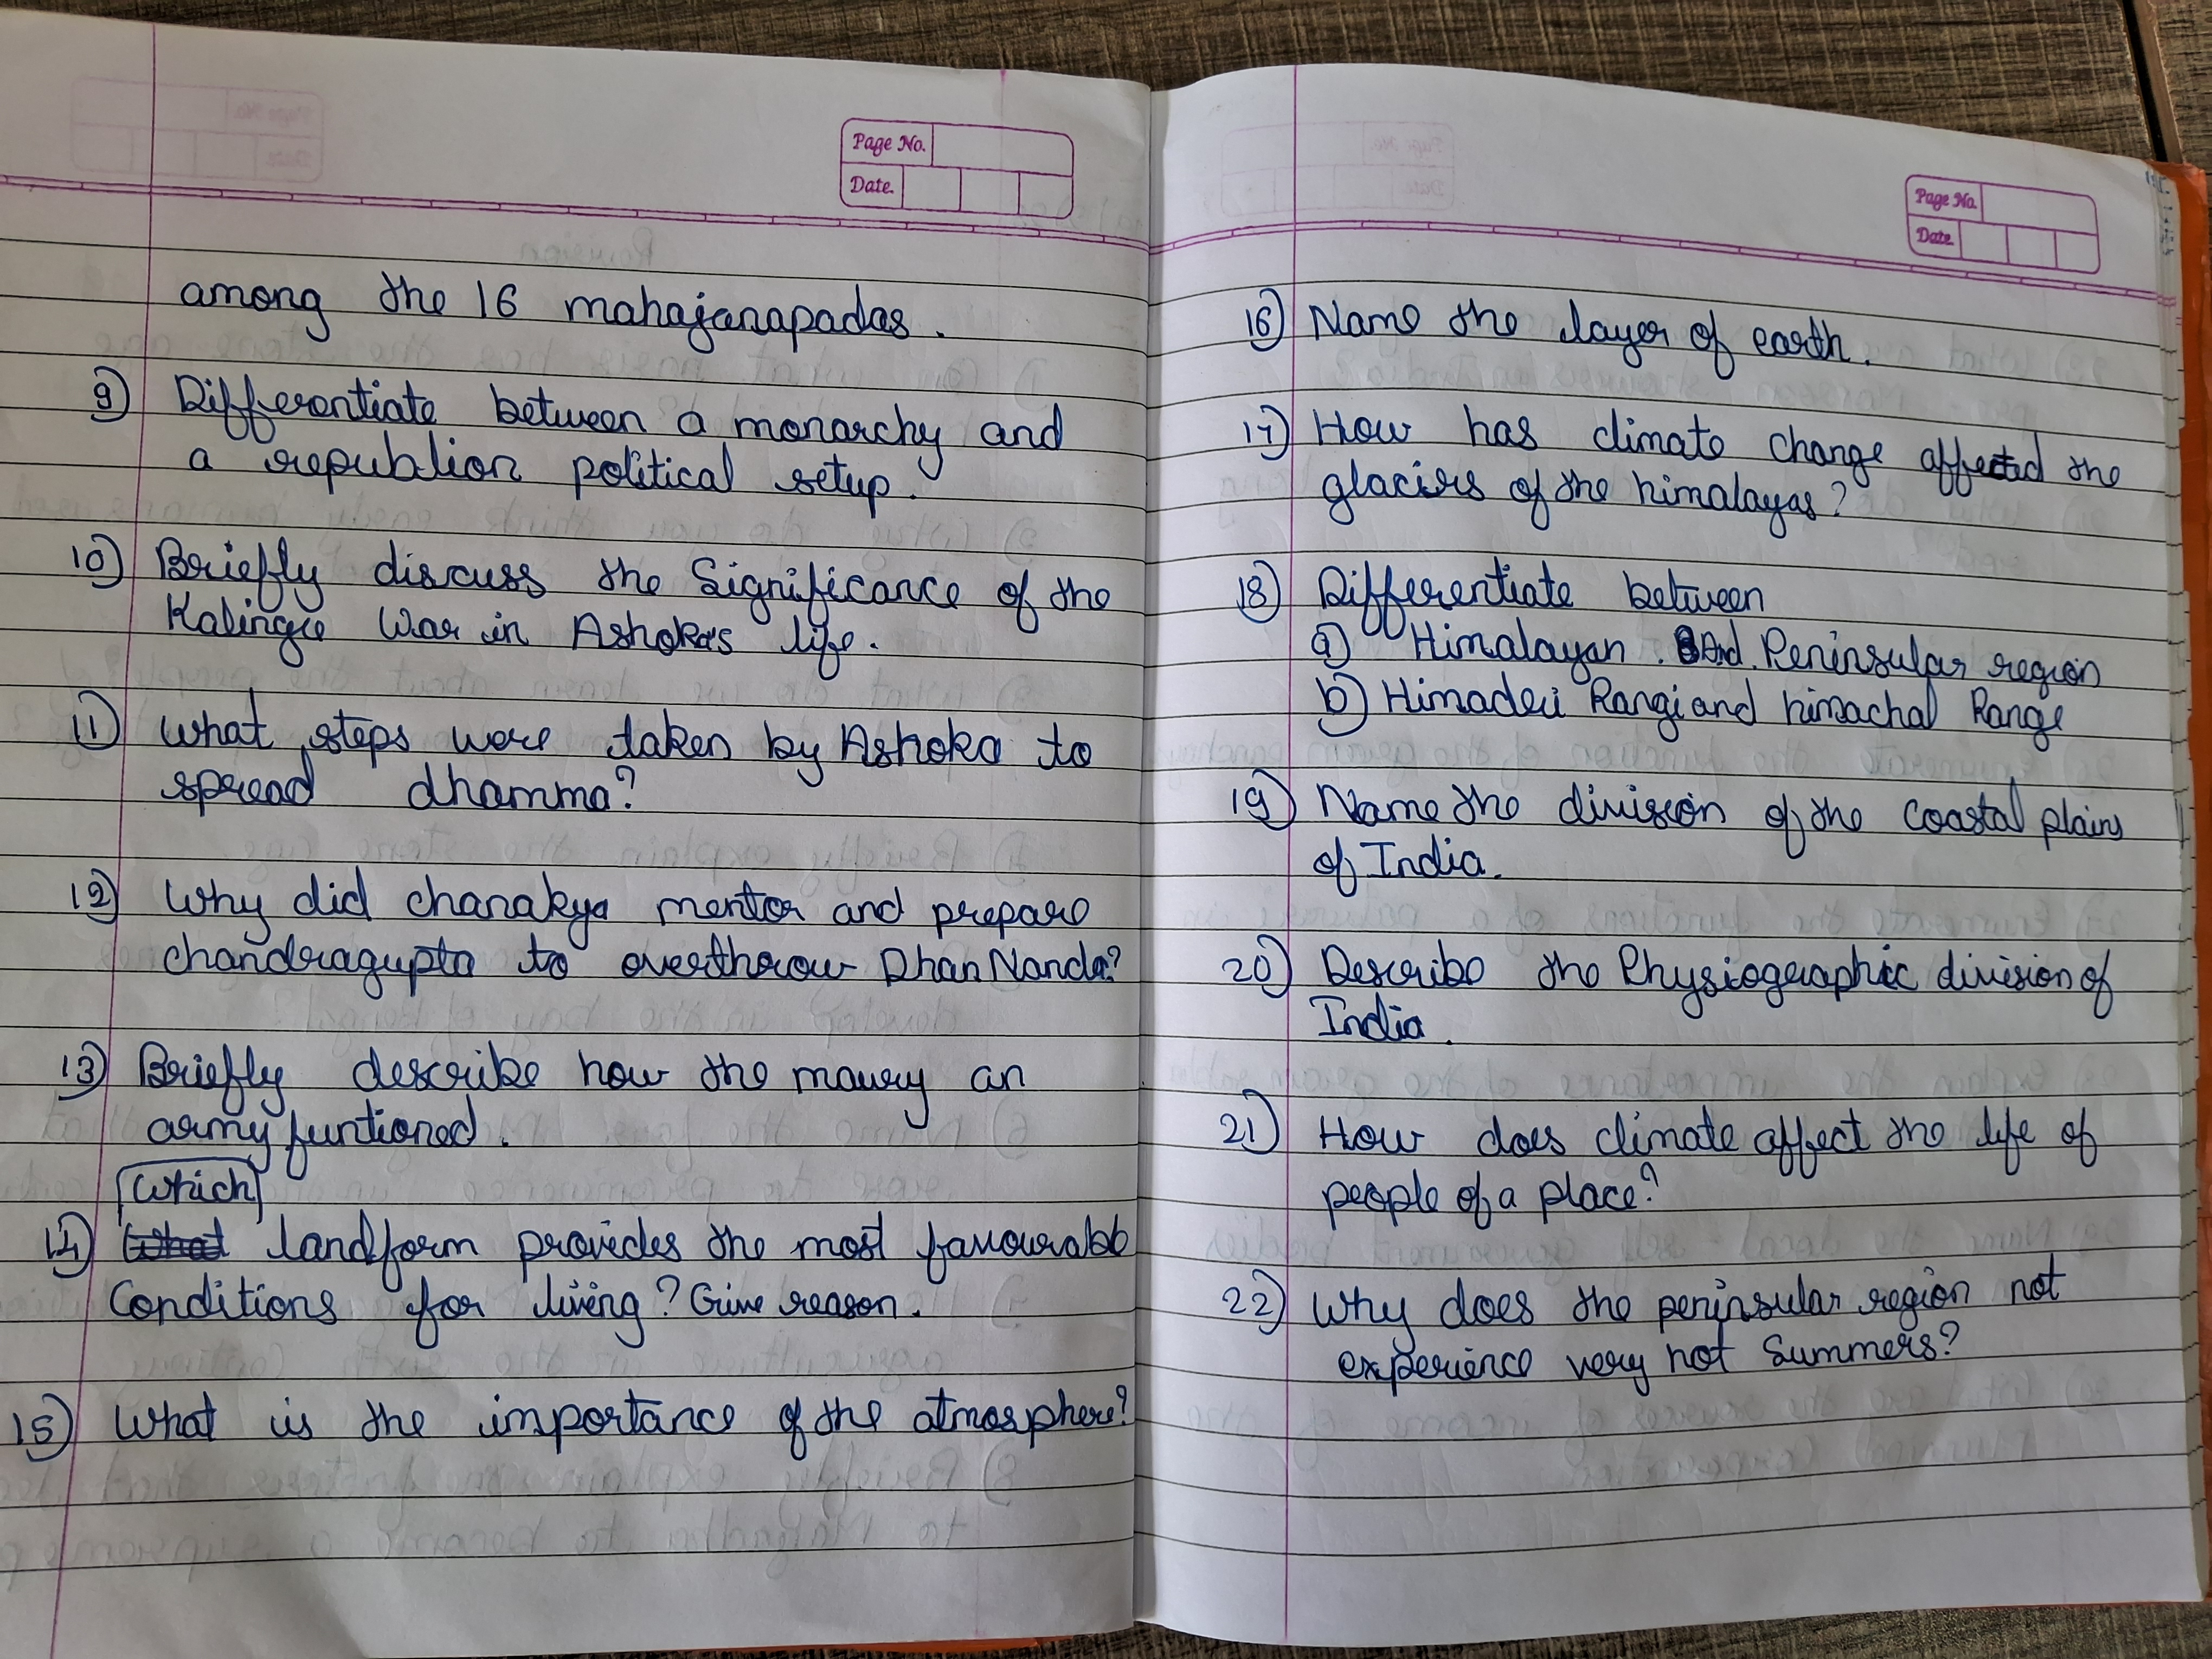 Page No.
Date.
among the 16 mahajanapadas.
9) Differentiate between a monarchy and
a republion political setup.
10) Briefly discuss the Significance of the
Kalinga War in Ashoka's life.
11) What steps were taken by Ashoka to
spread dhamma?
12) Why did chanakya mentor and prepare
chandragupta to overthrow Dhan Nanda?
13) Briefly describe how the maury an
army funtioned.
Which
14) landform provides the most favourable
Conditions for living? Give reason.
15) What is the importance of the atmosphere?
Page No.
Date
16) Name the layer of earth.
17) How has climate change affected the
glaciers of the himalayas?
18) Differentiate between
a) Himalayan And Peninsular region
b) Himadri Rangi and himachal Range
19) Name the division of the coastal plains
of India.
20) Describe the Physiographic division of
India.
21) How does climate affect the life of
people of a place?
22) Why does the peninsular region not
experience very hot Summers?